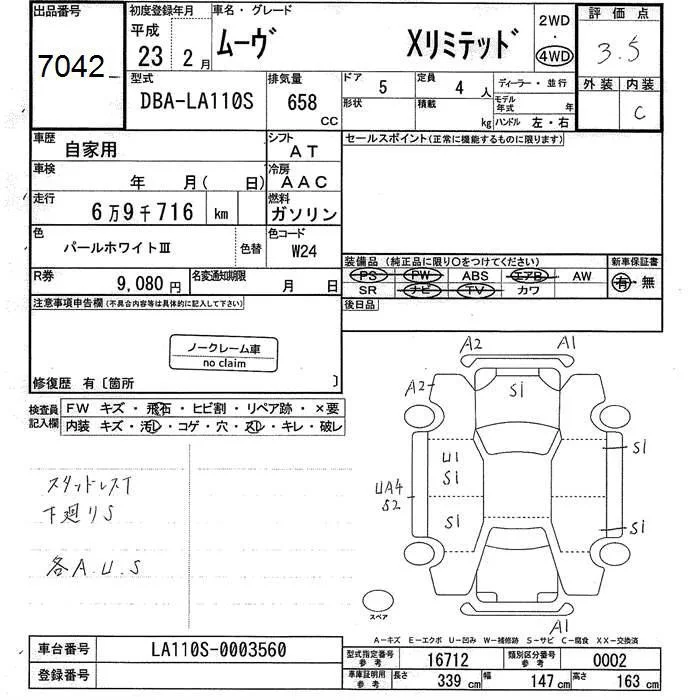 出品番号 初度登録年月 車名・グレード 2WD 評価点
7042 平成 23 2月 ムーヴ Xリミテッド ・ 4WD 3.5
型式 排気量 ドア 5 定員 4 人 ディーラー・並行 外装 内装
DBA-LA110S 658 CC 形状 積載 kg モデル年式 年 C
ハンドル 左・右
車歴 自家用 シフト AT セールスポイント(正常に機能するものに限ります)
車検 年 月( 日) 冷房 AAC
走行 6万9千716 km 燃料 ガソリン
色 パールホワイトⅢ 色替 色コード W24
装備品 (純正品に限り○をつけてください) 新車保証書
R券 9,080円 名変通知期限 月 日 PS PW ABS エアB AW 有・無
SR ナビ TV カワ
注意事項申告欄(不具合内容等は具体的に記入して下さい) 後日品
ノークレーム車
no claim
修復歴 有〔箇所 〕
検査員記入欄 FW キズ・飛石・ヒビ割・リペア跡・×要
内装 キズ・汚レ・コゲ・穴・スレ・キレ・破レ
スタッドレスT
下廻りS
各A.U.S
A2 A1
A2 S1
U1 S1
S1
UA4
S2 S1 S1
A1
スペア
A-キズ E-エクボ U-凹み W-補修跡 S-サビ C-腐食 XX-交換済
車台番号 LA110S-0003560 型式指定番号 参考 16712 類別区分番号 参考 0002
登録番号 車庫証明用 参考 長さ 339 cm 幅 147 cm 高さ 163 cm